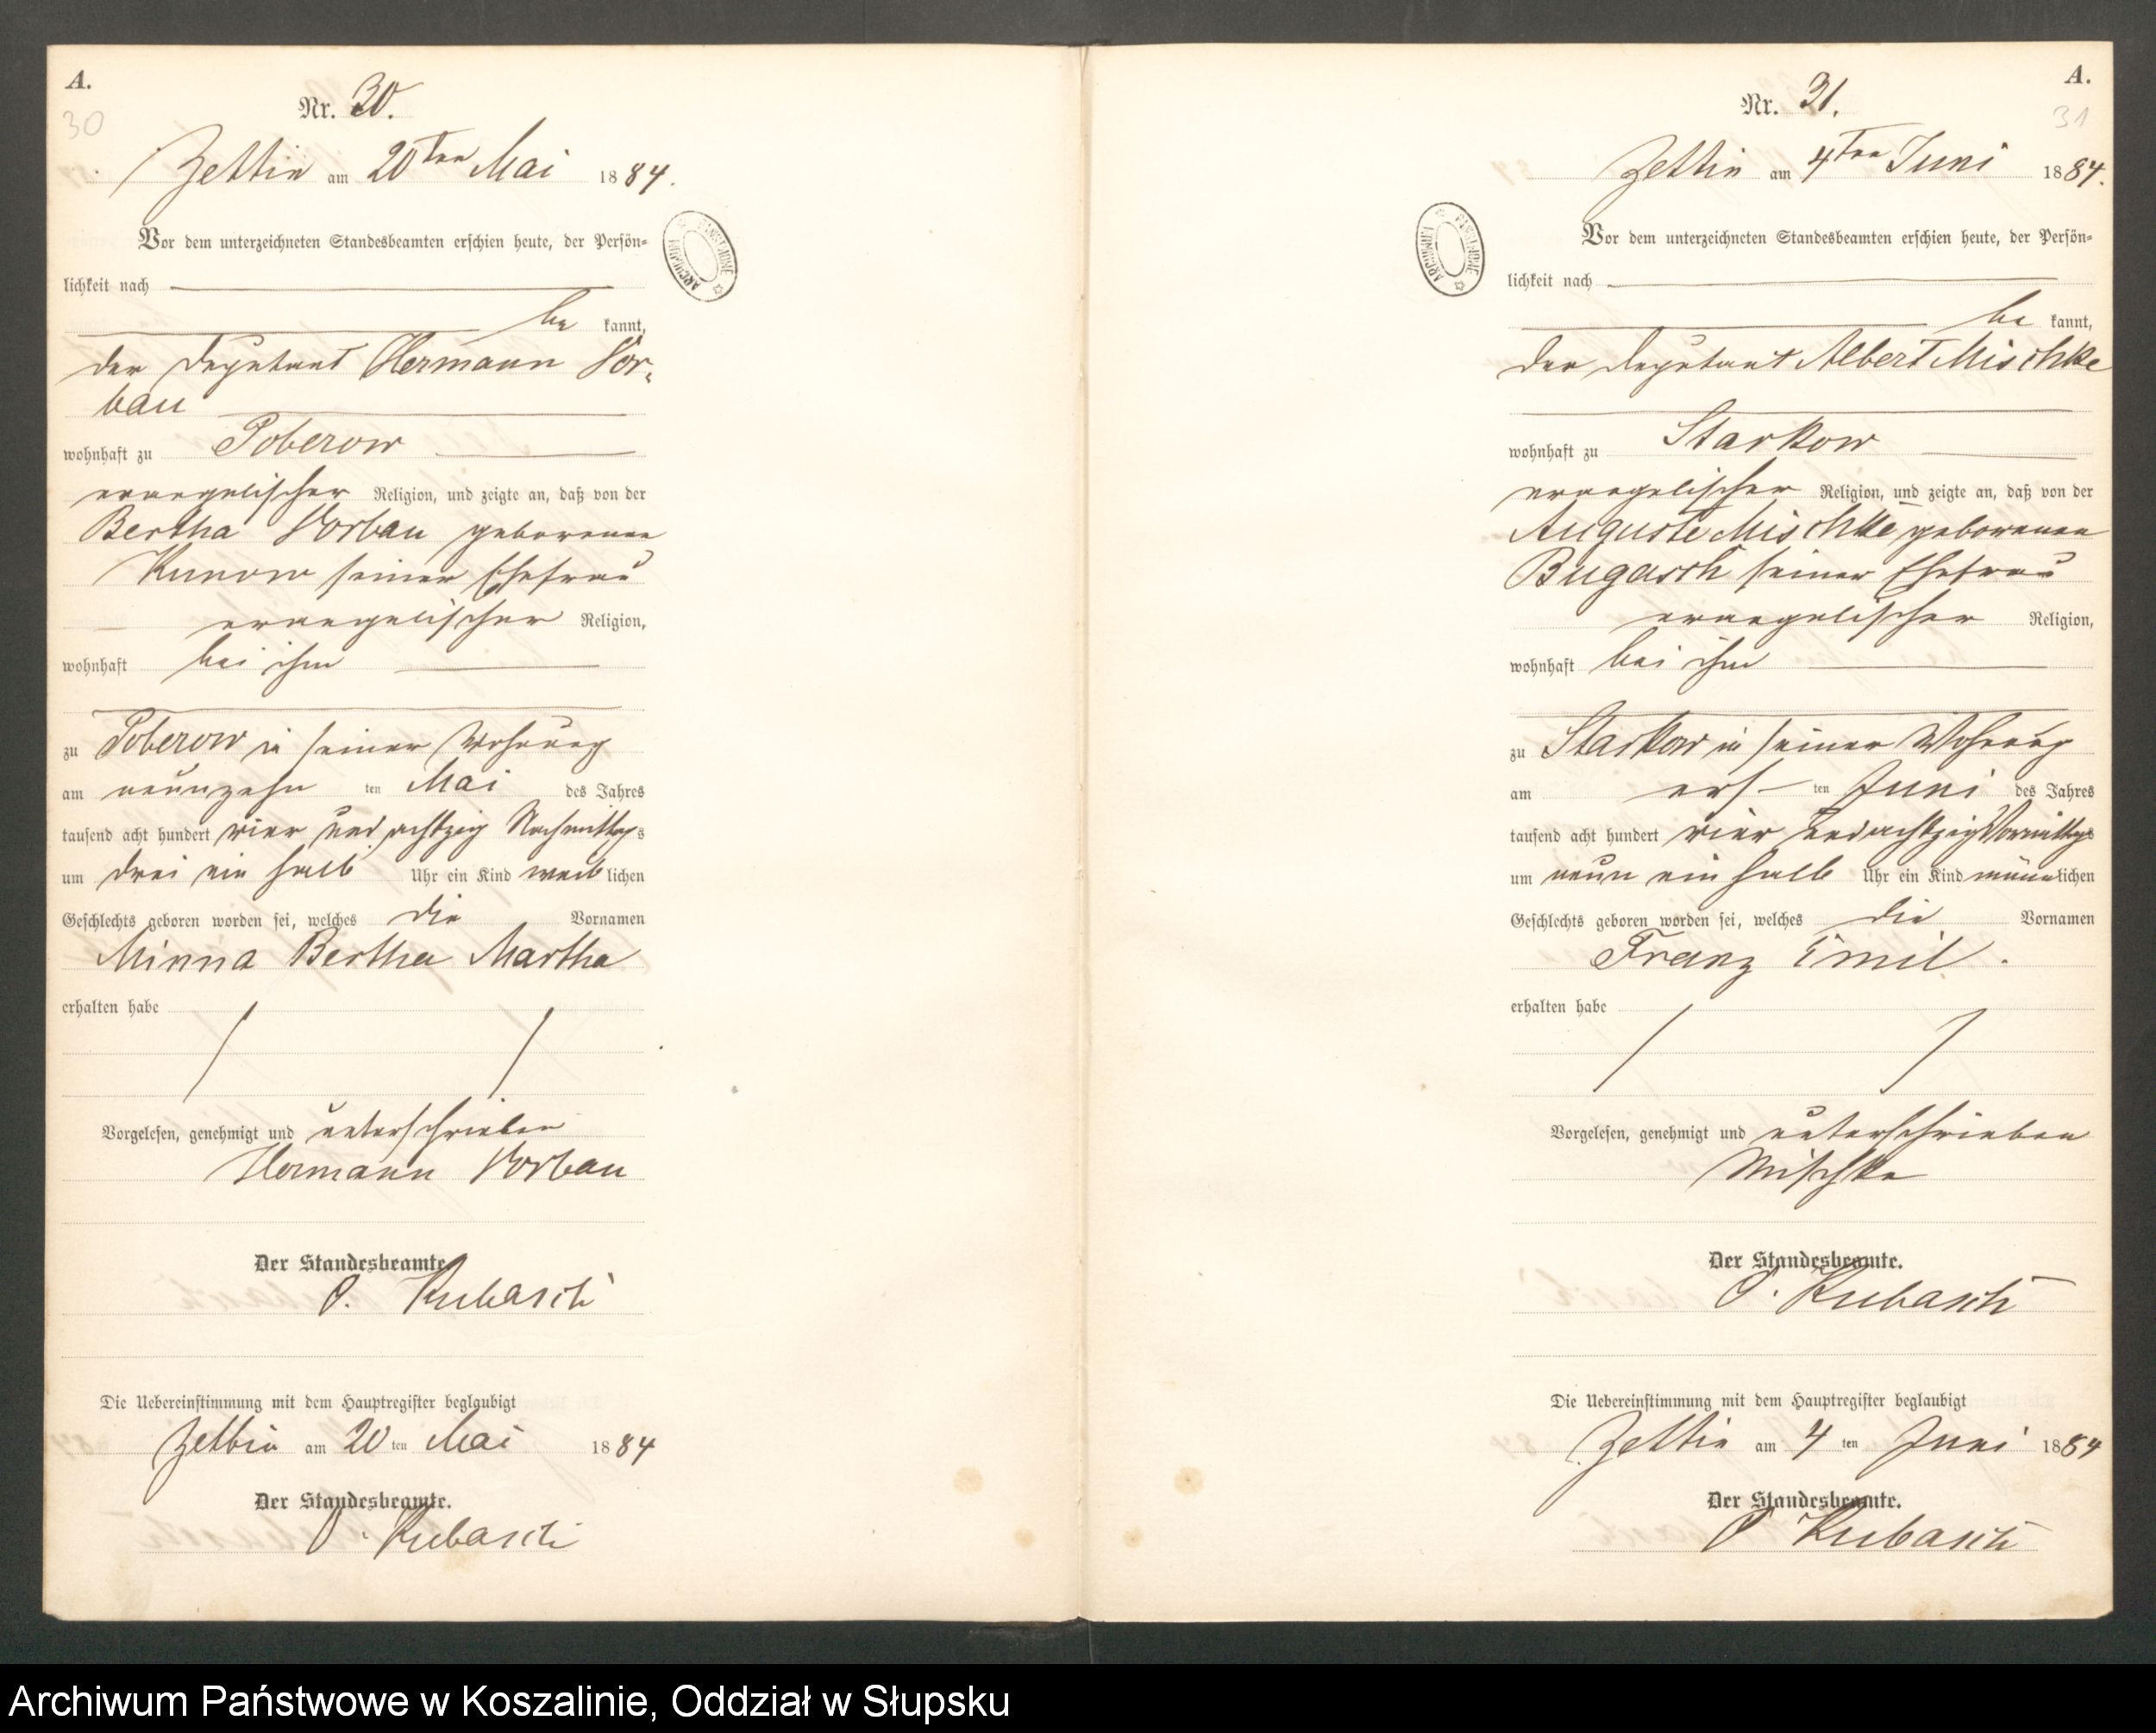 A.
30
Nr. 30.
Zettin am 20ten Mai 1884.
Vor dem unterzeichneten Standesbeamten erschien heute, der Persön-
lichkeit nach
be kannt,
der Deputant Hermann Vor-
bau
wohnhaft zu Poberow
evangelischer Religion, und zeigte an, daß von der
Bertha Vorbau geborenen
Kunow seiner Ehefrau
evangelischer Religion,
wohnhaft bei ihm
zu Poberow in seiner Wohnung
am neunzehn ten Mai des Jahres
tausend acht hundert vier und achtzig Nachmittags
um drei ein halb Uhr ein Kind weiblichen
Geschlechts geboren worden sei, welches die Vornamen
Minna Bertha Martha
erhalten habe
Vorgelesen, genehmigt und unterschrieben
Hermann Vorbau
Der Standesbeamte.
O. Kubasch
Die Uebereinstimmung mit dem Hauptregister beglaubigt
Zettin am 20 ten Mai 1884
Der Standesbeamte.
O. Kubasch
ARCHIWUM PAŃSTWOWE
A.
31
Nr. 31.
Zettin am 4ten Juni 1884.
Vor dem unterzeichneten Standesbeamten erschien heute, der Persön-
lichkeit nach
be kannt,
der Deputant Albert Mischke
wohnhaft zu Starkow
evangelischer Religion, und zeigte an, daß von der
Auguste Mischke geborenen
Bugasch seiner Ehefrau
evangelischer Religion,
wohnhaft bei ihm
zu Starkow in seiner Wohnung
am ers- ten Juni des Jahres
tausend acht hundert vier und achtzig Vormittags
um neun ein halb Uhr ein Kind männlichen
Geschlechts geboren worden sei, welches die Vornamen
Franz Emil.
erhalten habe
Vorgelesen, genehmigt und unterschrieben
Mischke
Der Standesbeamte.
O. Kubasch
Die Uebereinstimmung mit dem Hauptregister beglaubigt
Zettin am 4 ten Juni 1884
Der Standesbeamte.
O Kubasch
ARCHIWUM PAŃSTWOWE
Archiwum Państwowe w Koszalinie, Oddział w Słupsku